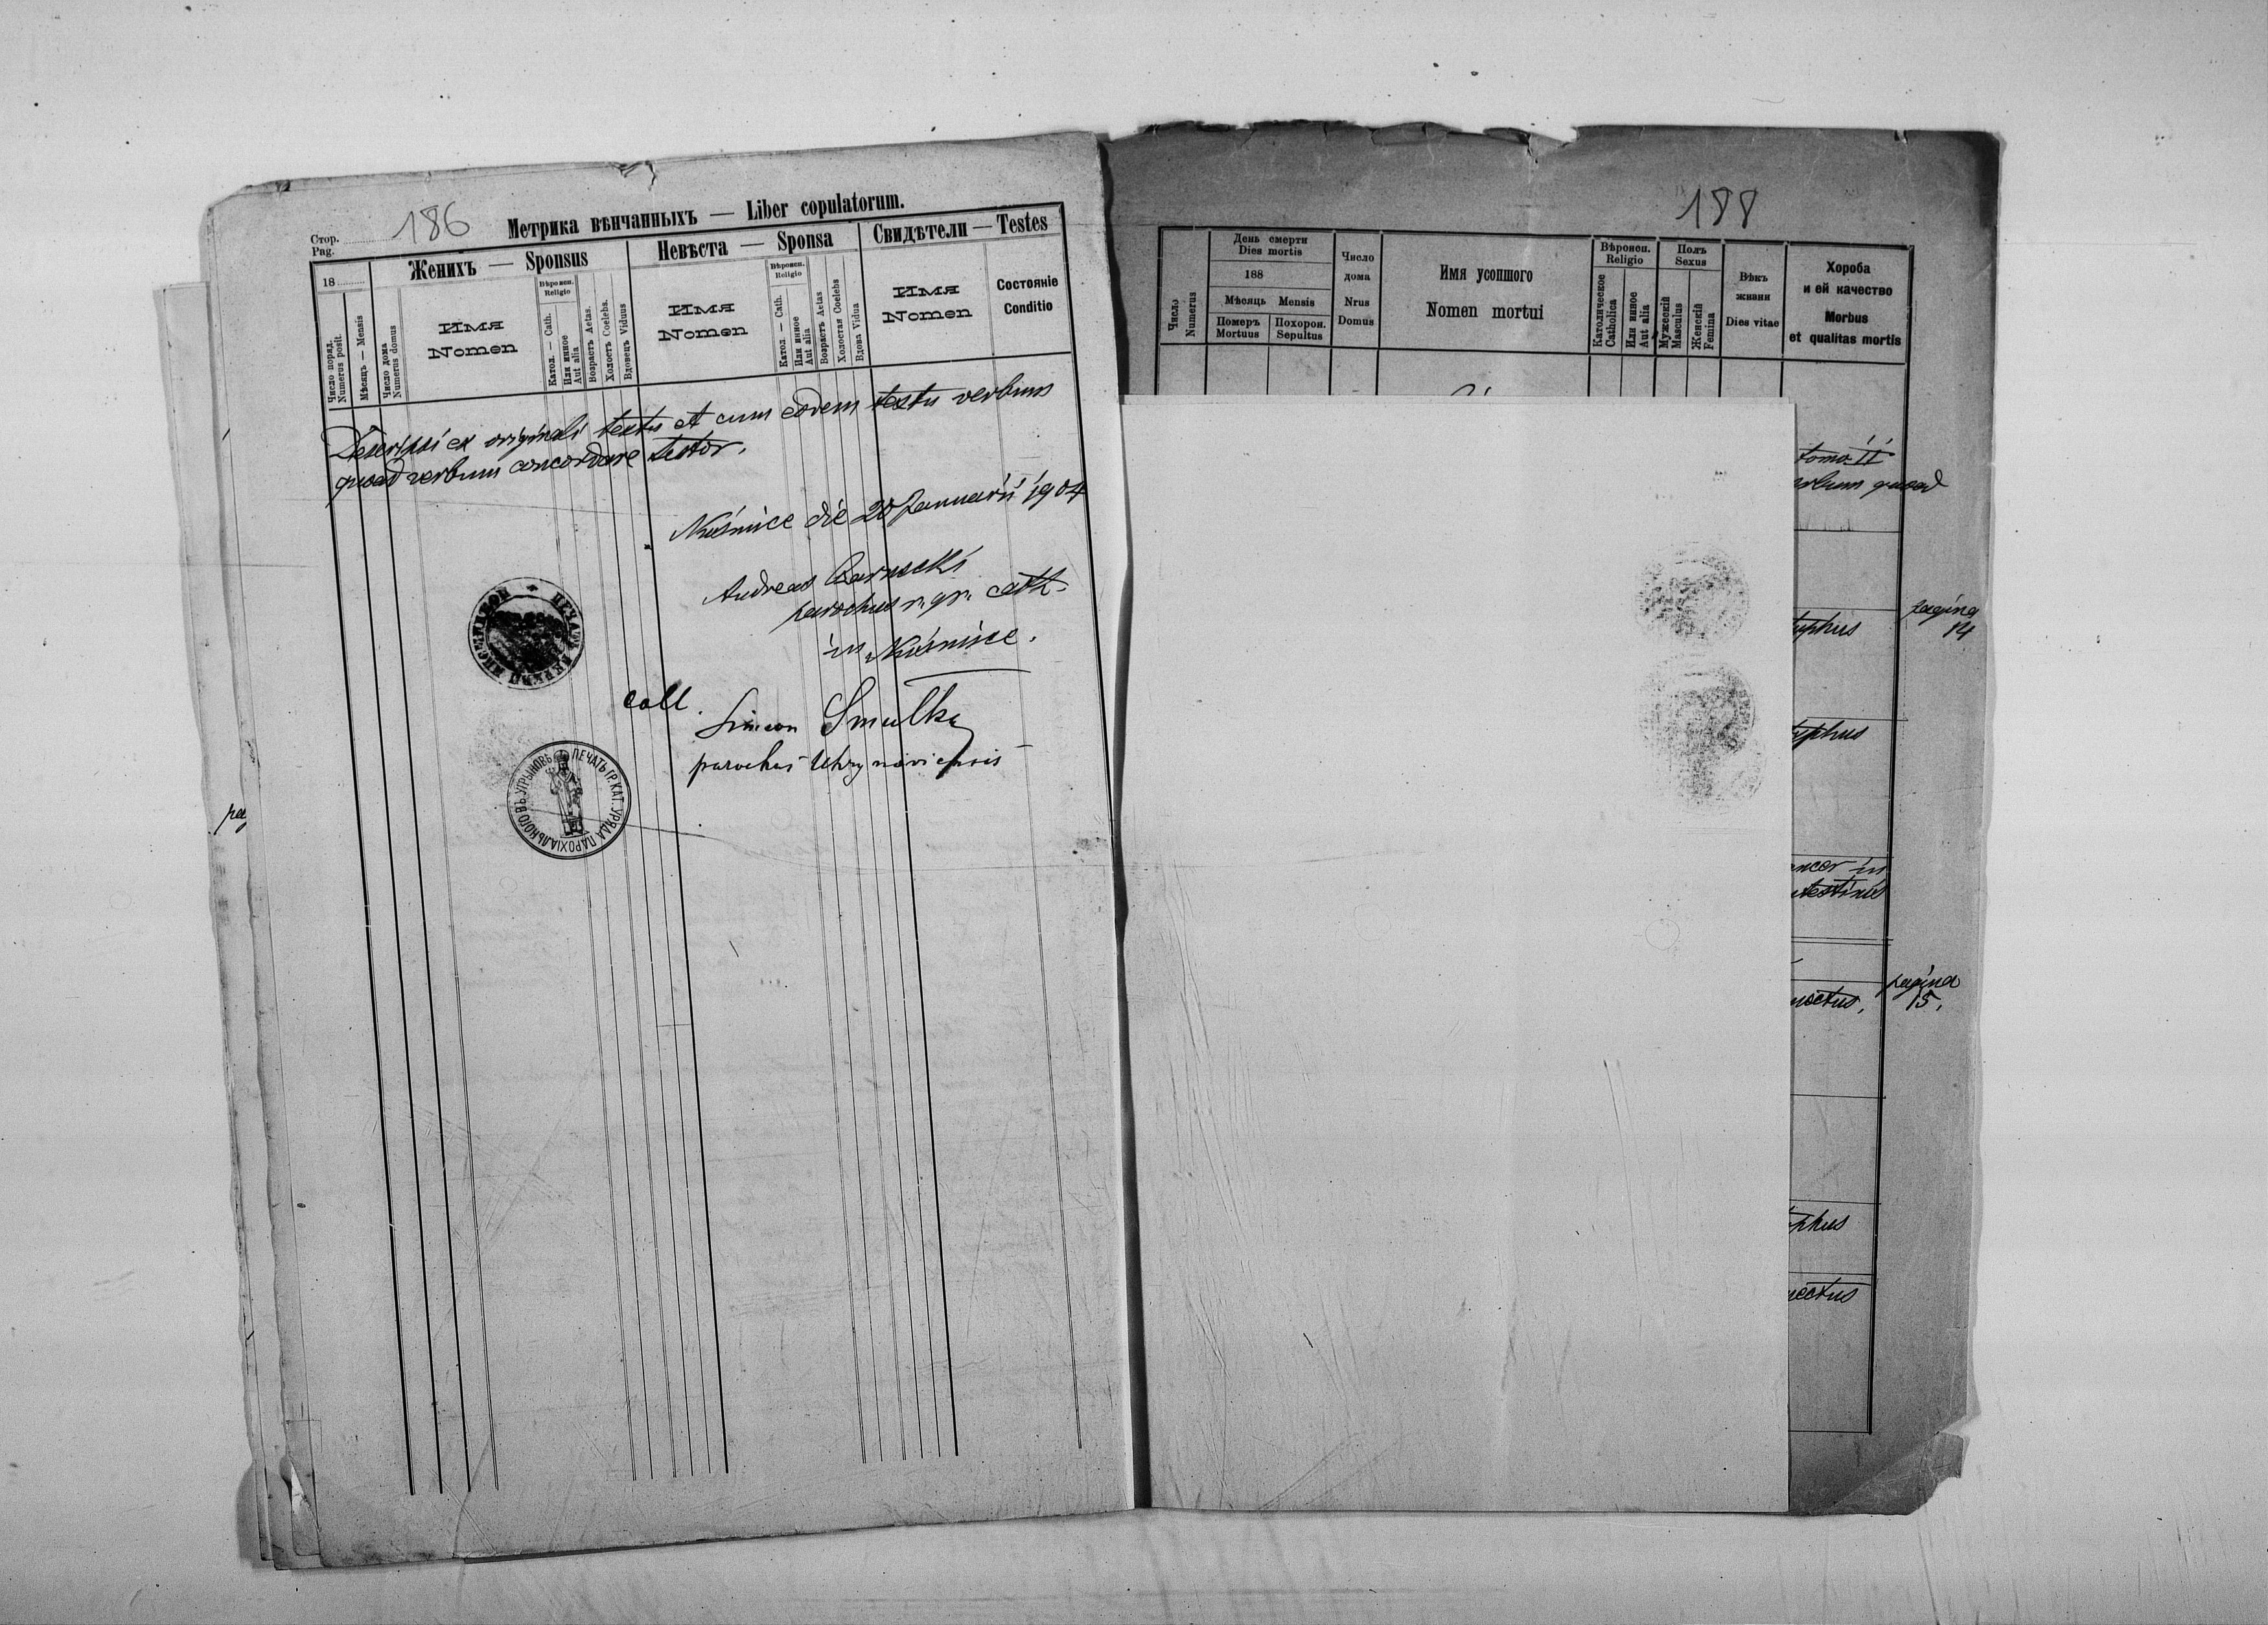 Стор. 186 Метрика вѣнчанныхъ — Liber copulatorum.
Pag.
18 Женихъ — Sponsus Невѣста — Sponsa Свидѣтели — Testes
Число поряд.
Numerus posit.
Мѣсяцъ — Mensis
Число дома
Numerus domus
Имя
Nomen
Вѣроисп.
Religio
Катол. — Cath.
Или инное
Aut alia
Возрастъ Aetas.
Холостъ Coelebs.
Вдовець Viduus
Имя
Nomen
Вѣроисп.
Religio
Катол. — Cath.
Или инное
Aut alia
Возрастъ Aetas
Холостая Coelebs
Вдова Vidua
Имя
Nomen
Состояніе
Conditio
Descripsi ex originali textu et cum eodem textu verbum
quoad verbum concordare testor.
die 20 Januarii 1904
Andreas
parochus r. gr. cath.
in
coll.
Simeon Smulka
parochus Uhrynoviensis
ПЕЧАТЬ ГР. КАТ. УРЯДА ПАРОХІАЛЬНОГО ВЪ УГРЫНОВѢ
188
Число
Numerus
День смерти
Dies mortis
188
Мѣсяць Mensis
Померъ
Mortuus
Похорон.
Sepultus
Число
дома
Nrus
Domus
Имя усопшого
Nomen mortui
Вѣроисп.
Religio
Католическое
Catholica
Или инное
Aut alia
Полъ
Sexus
Мужескій
Masculus
Женскій
Femina
Вѣкъ
жизни
Dies vitae
Хороба
и ей качество
Morbus
et qualitas mortis
tomo II
quoad
pagina
14
pagina
15.